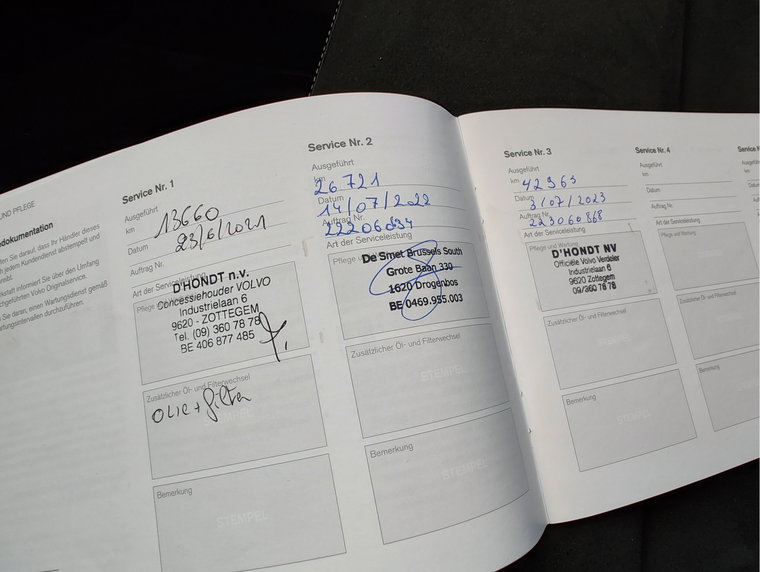 UND PFLEGE
dokumentation
ten Sie darauf, dass Ihr Händler dieses
jedem Kundendienst abstempelt und
eibt.
rkstatt informiert Sie über den Umfang
chgeführten Volvo Originalservice.
Sie daran, einen Wartungsdienst gemäß
rtungsintervallen durchzuführen.
Service Nr. 1
Ausgeführt
km 13660
Datum 23/6/2021
Auftrag Nr.
Art der Serviceleistung
Pflege
D'HONDT n.v.
Concessiehouder VOLVO
Industrielaan 6
9620 - ZOTTEGEM
Tel. (09) 360 78 78
BE 406 877 485
Zusätzlicher Öl- und Filterwechsel
OLIE + filter
STEMPEL
Bemerkung
STEMPEL
Service Nr. 2
Ausgeführt
km 26721
Datum 14/07/2022
Auftrag Nr.
Art der Serviceleistung
Pflege
De Smet Brussels South
Grote Baan 330
1620 Drogenbos
BE 0469.955.003
Zusätzlicher Öl- und Filterwechsel
STEMPEL
Bemerkung
STEMPEL
Service Nr. 3
Ausgeführt
km 42963
Datum 3/07/2023
Auftrag Nr.
Art der Serviceleistung
Pflege und Wartung
D'HONDT NV
Officiële Volvo Verdeler
Industrielaan 6
9620 Zottegem
09/360 78 78
Zusätzlicher Öl- und Filterwechsel
Bemerkung
Service Nr. 4
Ausgeführt
km
Datum
Auftrag Nr.
Art der Serviceleistung
Pflege und Wartung
Zusätzlicher Öl- und Filterwechsel
Bemerkung
Service